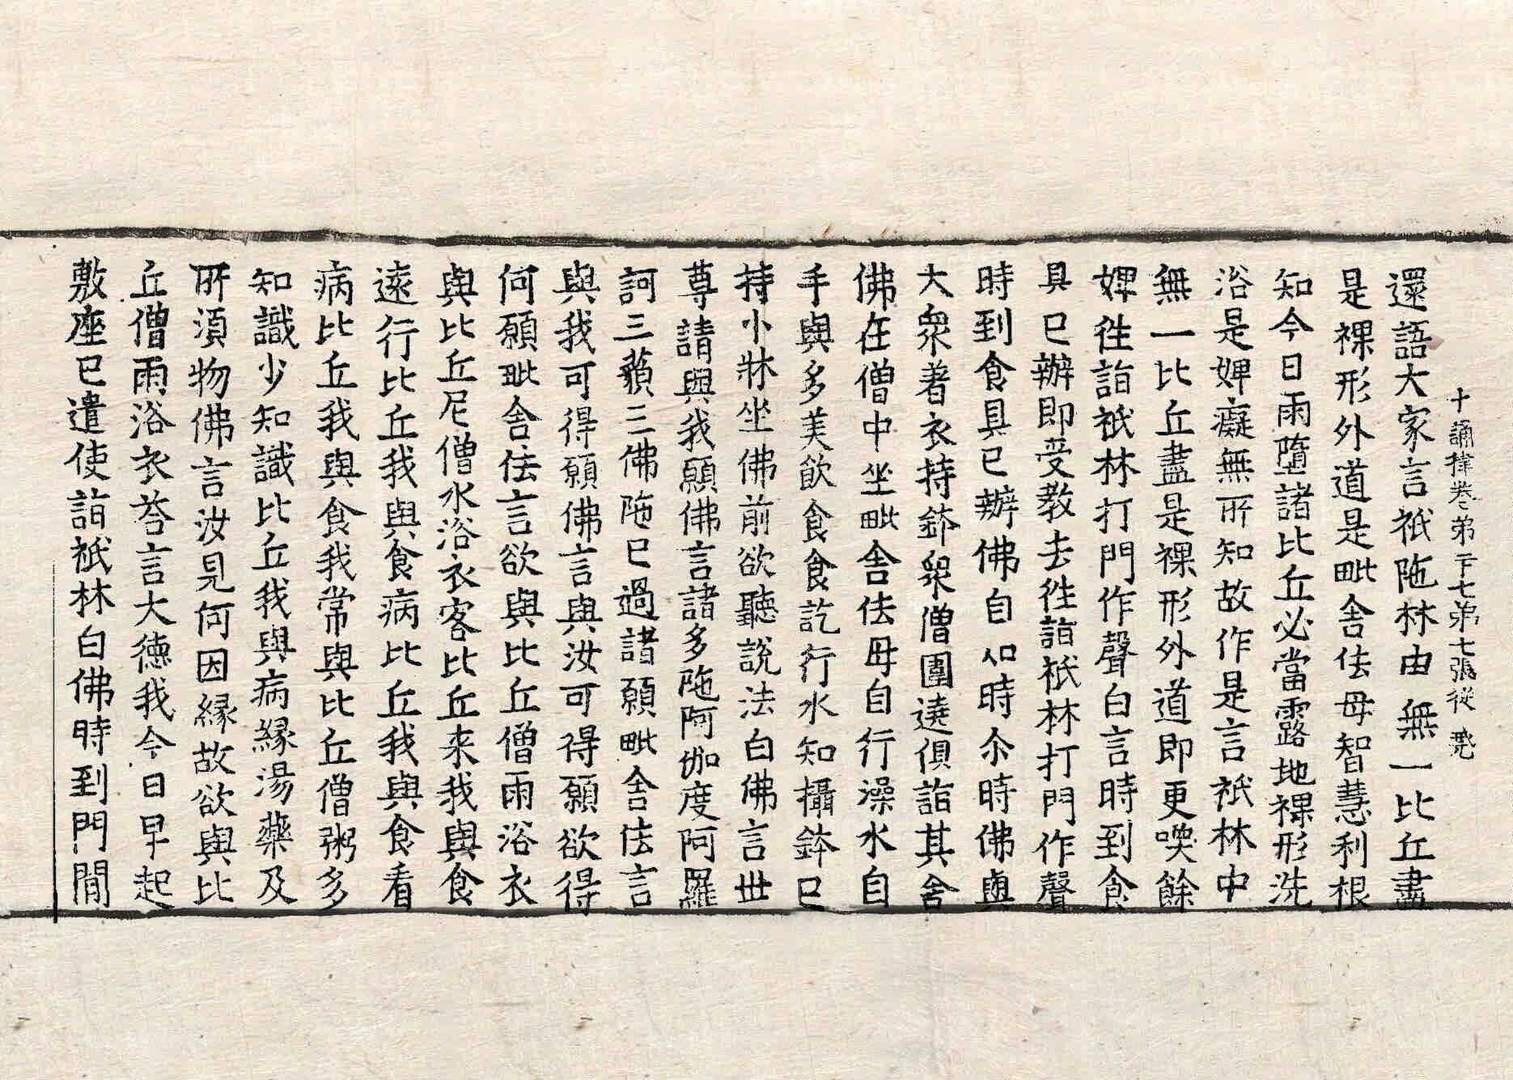 十誦律卷第二十七第七張從
還語大家言祇陁林中無一比丘盡
是裸形外道是毗舍佉母智慧利根
知今日雨墮諸比丘必當露地裸形洗
浴是婢癡無所知故作是言祇林中
無一比丘盡是裸形外道即更喚餘
婢徃詣祇林打門作聲白言時到食
具已辦即受教去徃詣祇林打門作聲
時到食具已辦佛自知時尒時佛與
大衆著衣持鉢衆僧圍遶俱詣其舍
佛在僧中坐毗舍佉母自行澡水自
手與多美飲食食訖行水知攝鉢已
持小牀坐佛前欲聽說法白佛言世
尊請與我願佛言諸多陁阿伽度阿羅
訶三藐三佛陁已過諸願毗舍佉言
與我可得願佛言與汝可得願欲得
何願毗舍佉言欲與比丘僧雨浴衣
與比丘尼僧水浴衣客比丘来我與食
遠行比丘我與食病比丘我與食看
病比丘我與食我常與比丘僧粥多
知識少知識比丘我與病緣湯藥及
所須物佛言汝見何因緣故欲與比
丘僧雨浴衣荅言大德我今日早起
敷座已遣使詣祇林白佛時到門閒